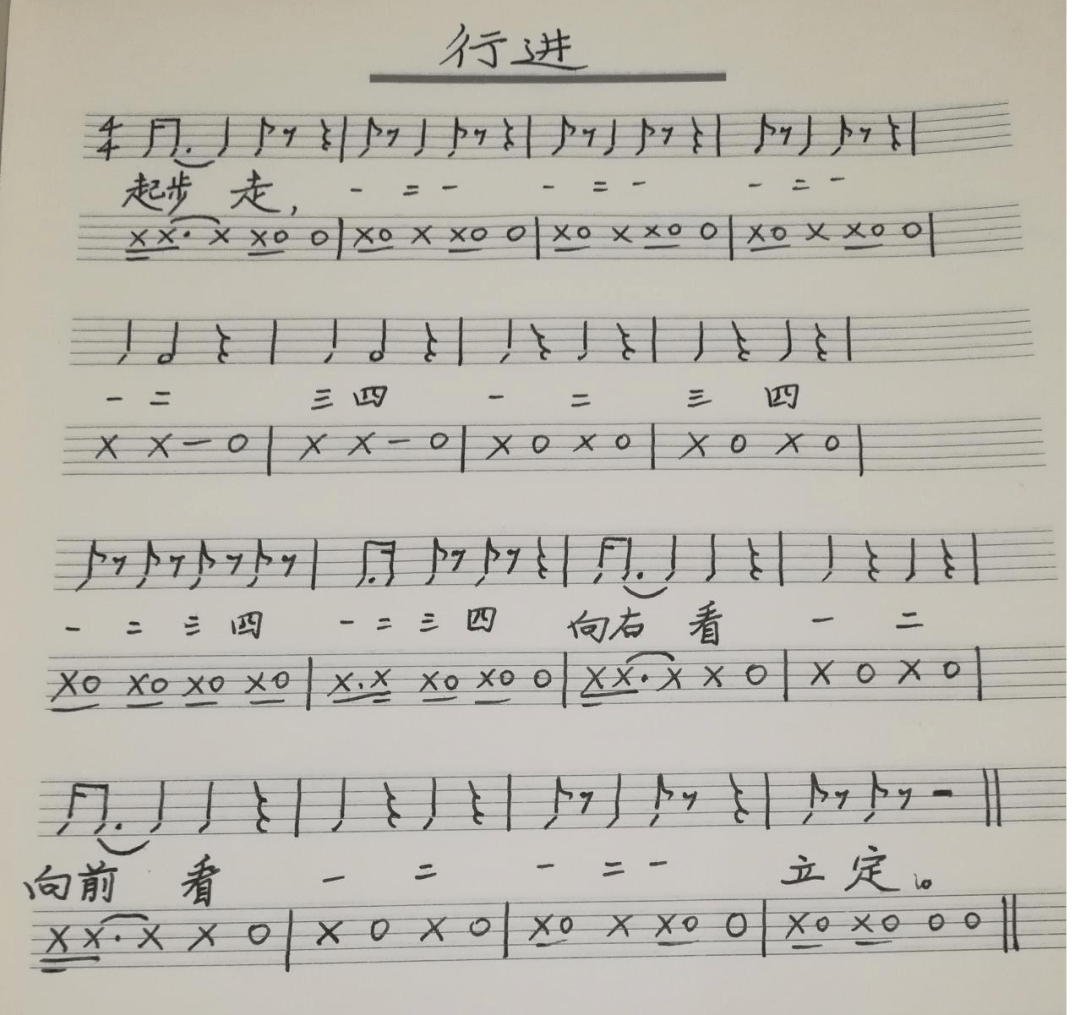 行进
4/4
起步 走, 一 二 一 一 二 一 一 二 一
XX. X X0 0 | X0 X X0 0 | X0 X X0 0 | X0 X X0 0 |
一 二 三 四 一 二 三 四
X X — 0 | X X — 0 | X 0 X 0 | X 0 X 0 |
一 二 三 四 一 二 三 四 向右 看 一 二
X0 X0 X0 X0 | X.X X0 X0 0 | XX. X X 0 | X 0 X 0 |
向前 看 一 二 一 二 一 立 定。
XX. X X 0 | X 0 X 0 | X0 X X0 0 | X0 X0 0 0 ||